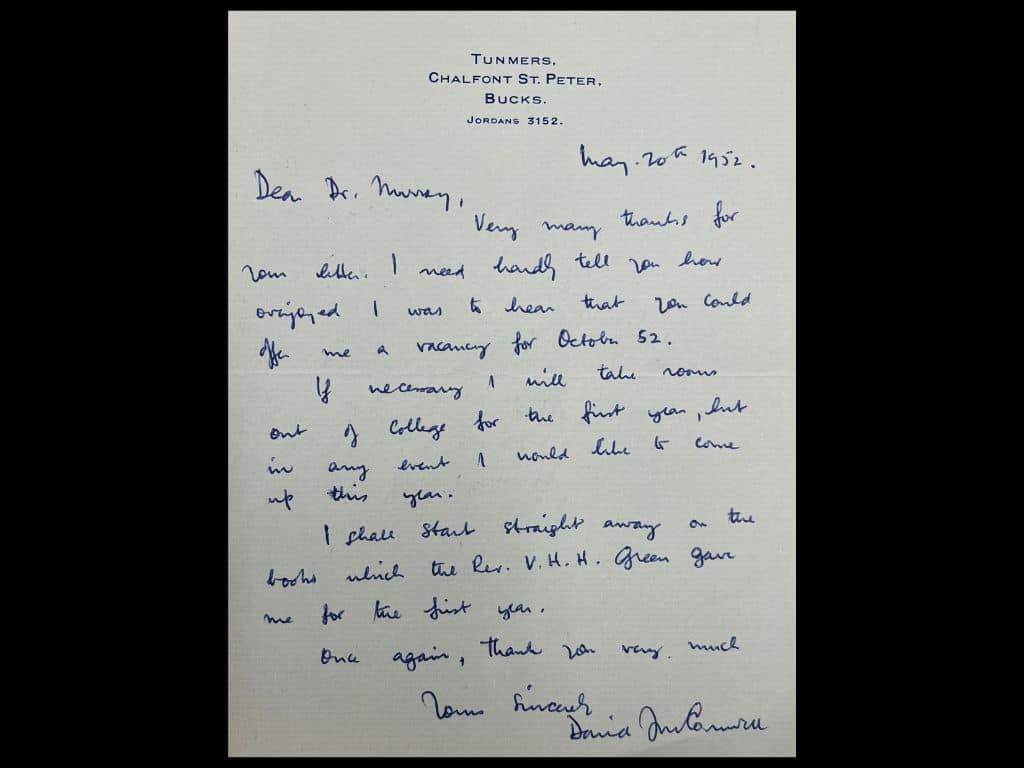 TUNMERS,
CHALFONT ST. PETER,
BUCKS.
JORDANS 3152.
May. 20th 1952.
Dear Dr. Murray,
Very many thanks for
your letter. I need hardly tell you how
overjoyed I was to hear that you could
offer me a vacancy for October 52.
If necessary I will take rooms
out of College for the first year, but
in any event I would like to come
up this year.
I shall start straight away on the
books which the Rev. V. H. H. Green gave
me for the first year.
Once again, thank you very much
Yours Sincerely
David JM Cornwell